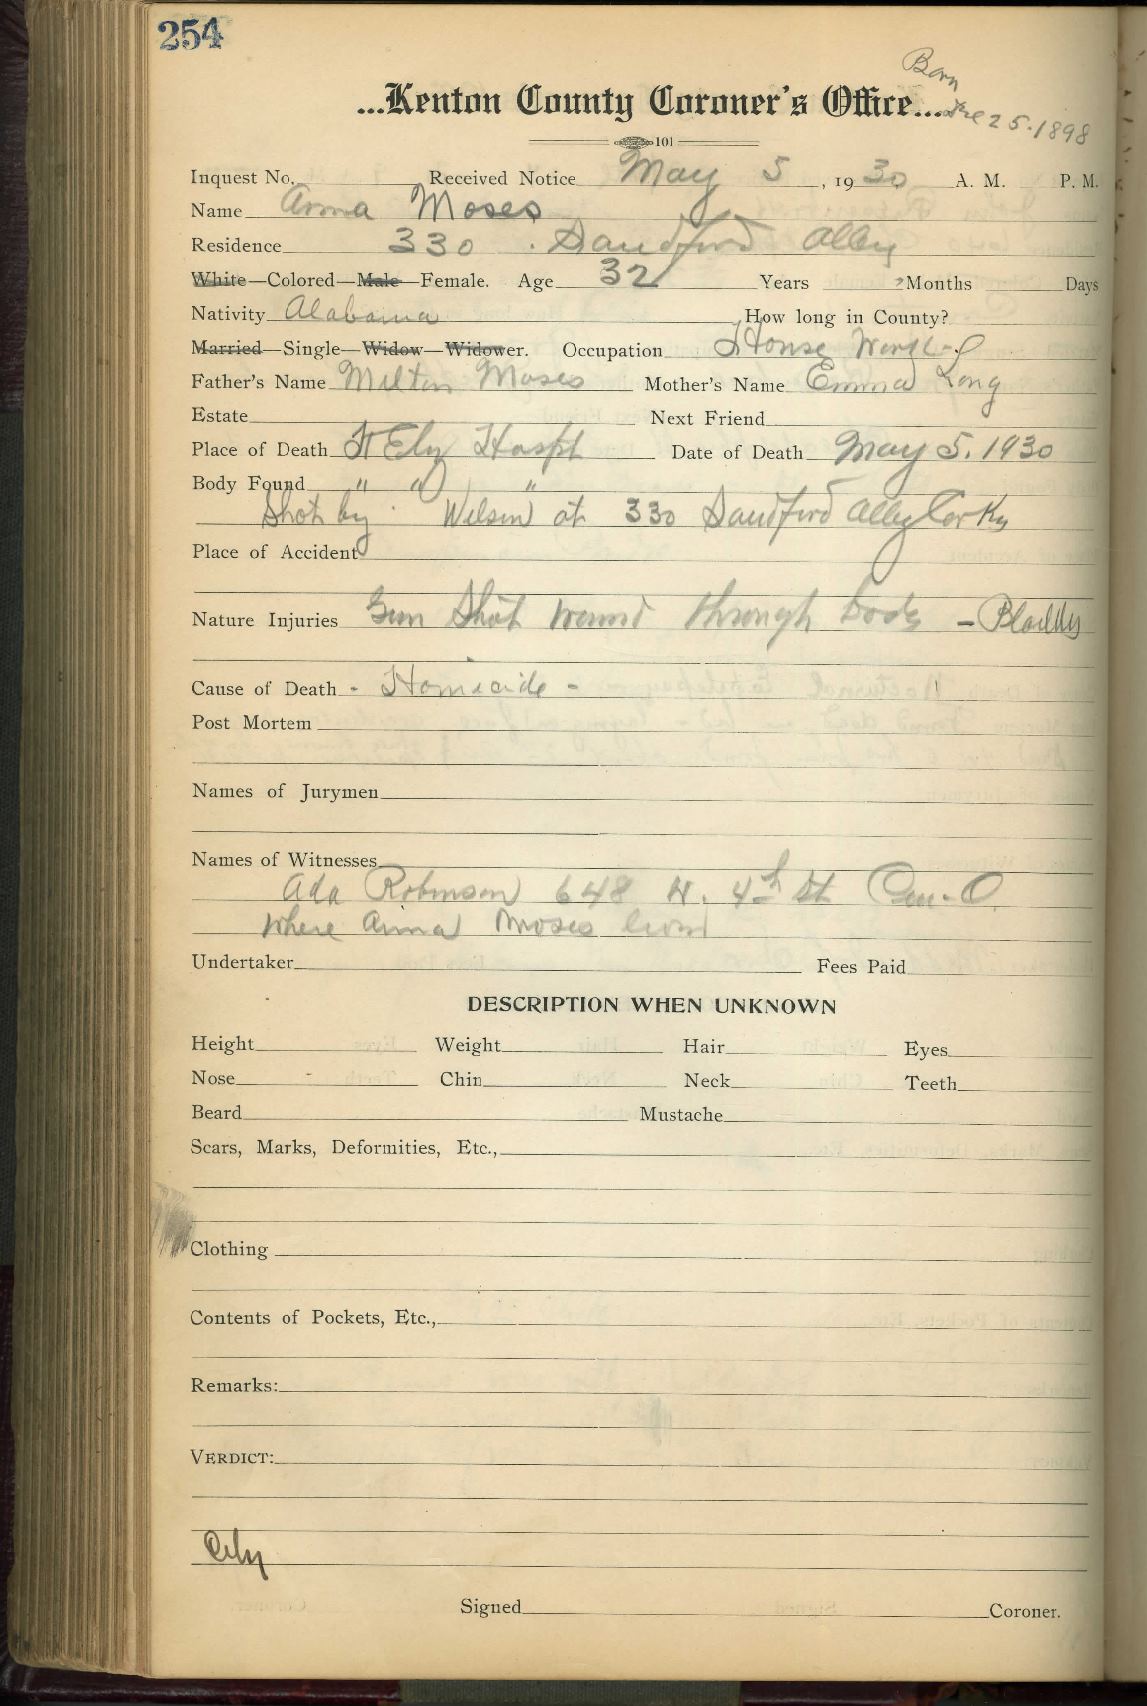 254
Born
...Kenton County Coroner's Office...
Dec 25-1898
101
Inquest No. Received Notice May 5, 1930 A. M. P. M.
Name Anna Moses
Residence 330 Sandford Alley
White—Colored—Male—Female. Age 32 Years ? Months Days
Nativity Alabama How long in County?
Married—Single—Widow—Widower. Occupation House Work
Father's Name Milton Moses Mother's Name Emma Long
Estate Next Friend
Place of Death St Eliz Hospt Date of Death May 5. 1930
Body Found " " "
Shot by Wilson at 330 Sandford Alley Cov Ky
Place of Accident
Nature Injuries Gun Shot wound through body - Bladder
Cause of Death - Homicide -
Post Mortem
Names of Jurymen
Names of Witnesses
Ada Robinson 648 W. 4th St Cin-O.
where Anna Moses lived
Undertaker Fees Paid
DESCRIPTION WHEN UNKNOWN
Height Weight Hair Eyes
Nose Chin Neck Teeth
Beard Mustache
Scars, Marks, Deformities, Etc.,
Clothing
Contents of Pockets, Etc.,
Remarks:
VERDICT:
City
Signed Coroner.